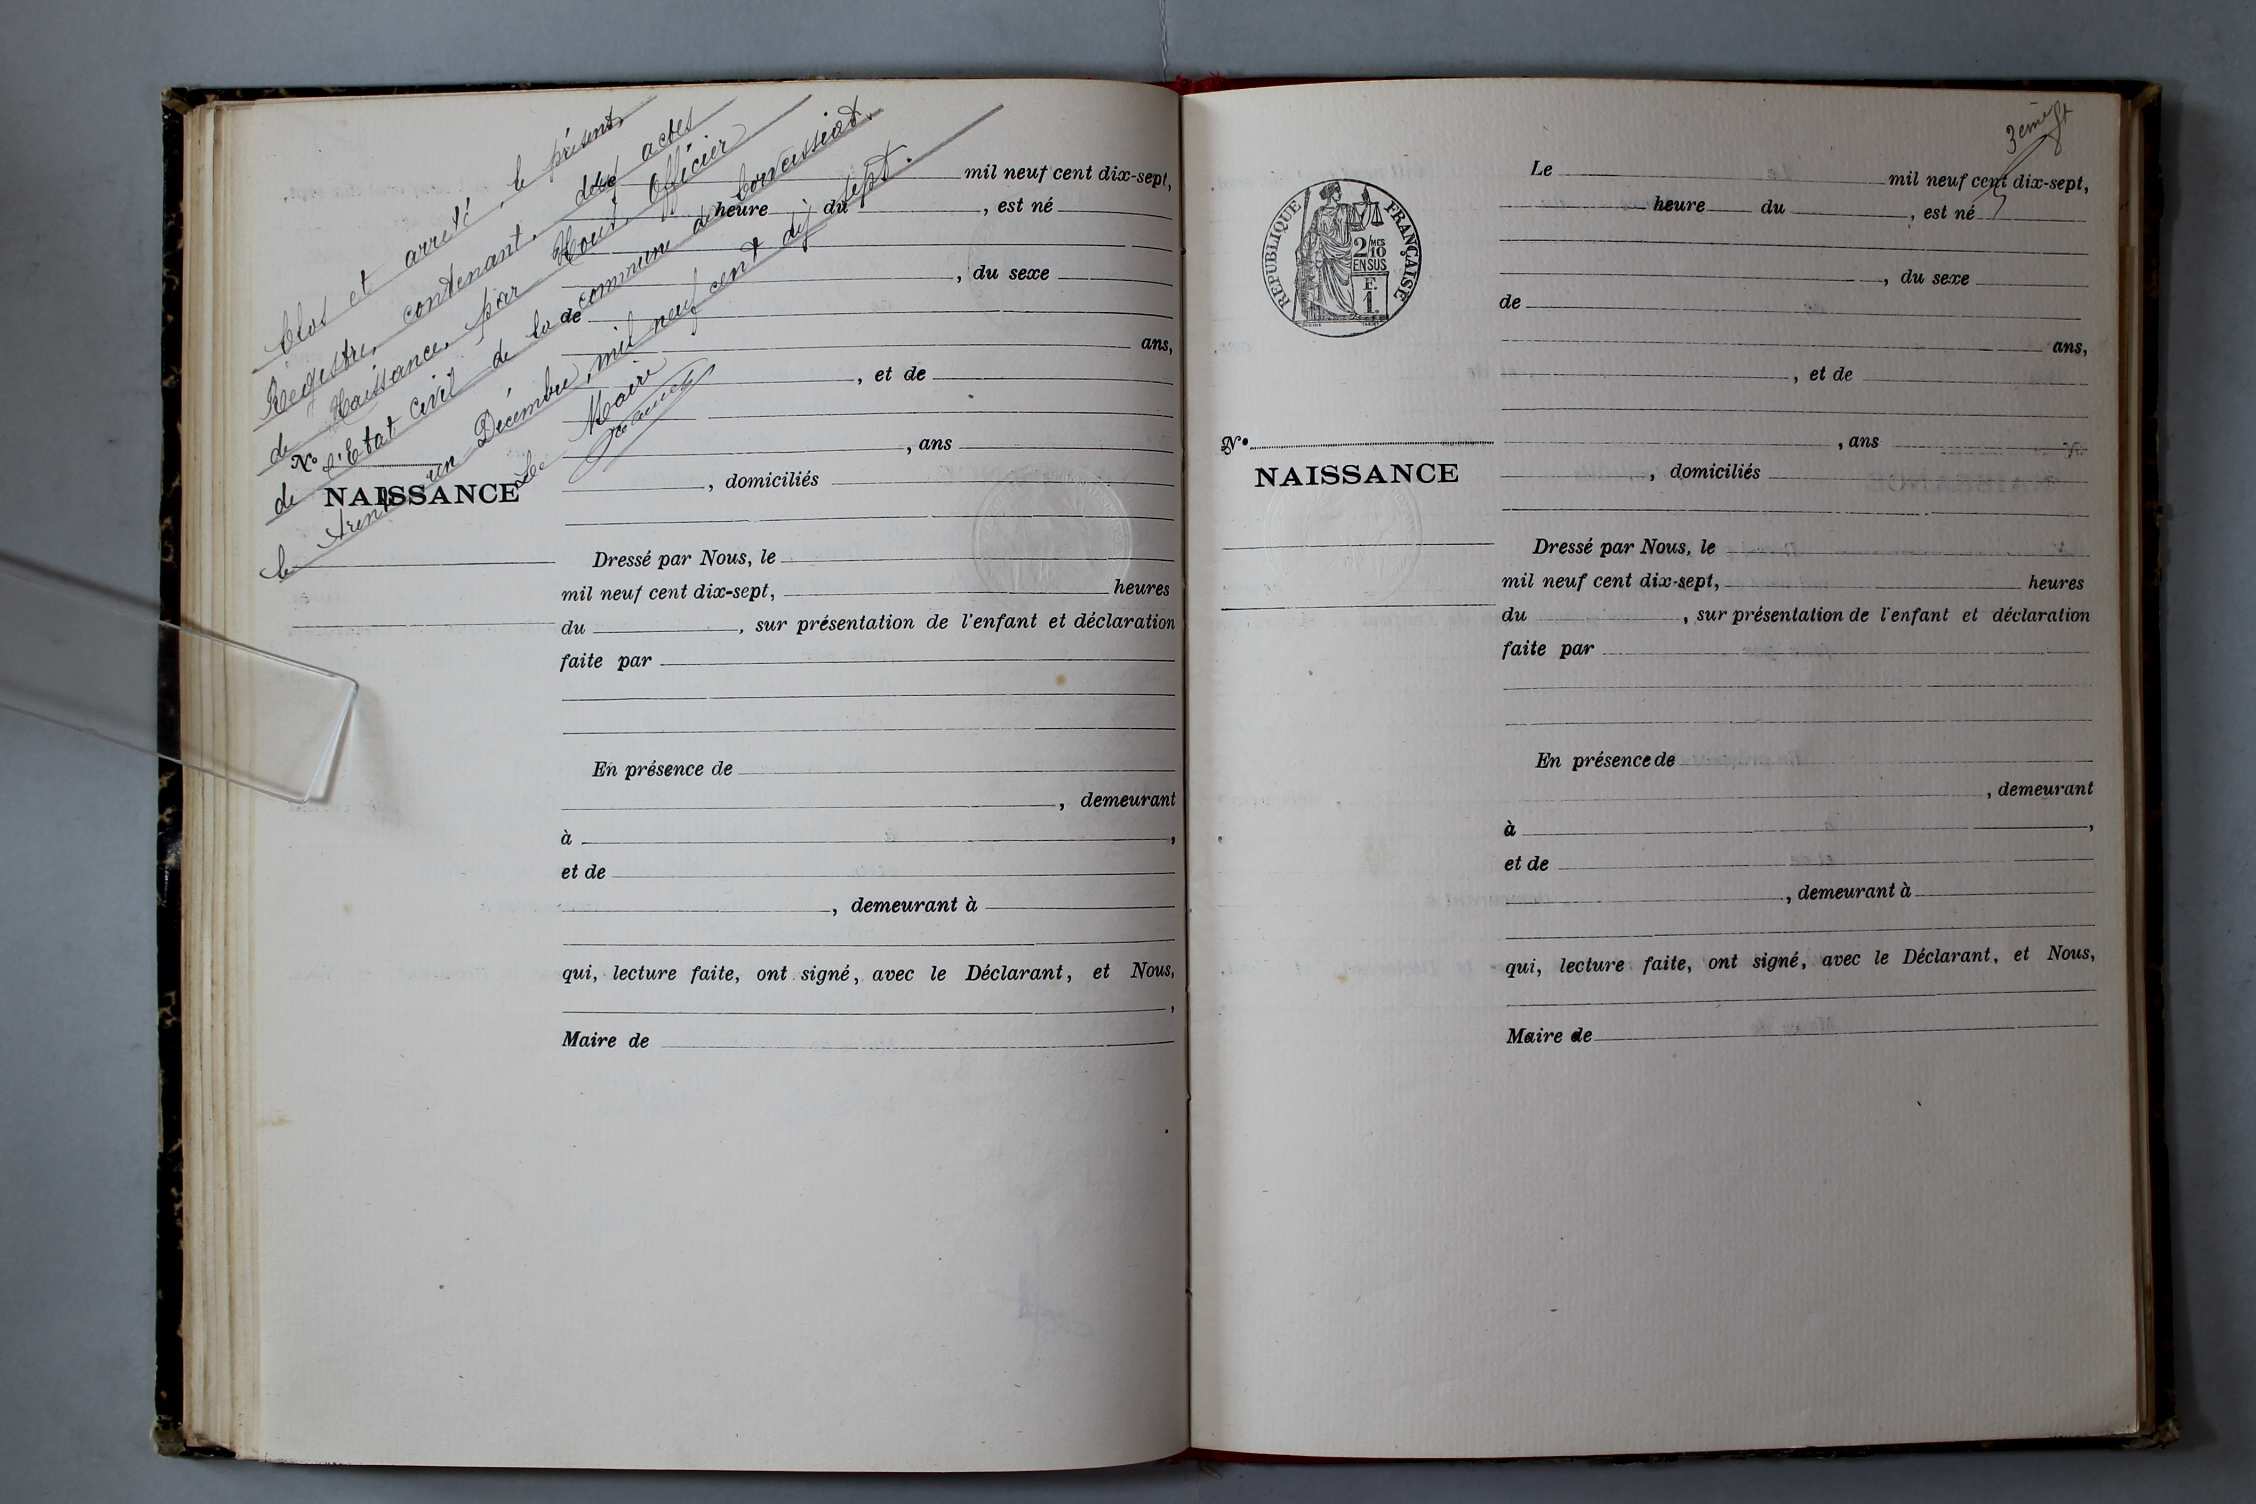 Clos et arrêté, le présent
Régistre, contenant deux actes
de Naissance, par Nous, Officier
de l'Etat Civil de la commune de
le trente un Décembre, mil neuf cent dix sept.
Le Maire
mil neuf cent dix-sept,
heure du , est né
, du sexe
de
ans,
, et de
, ans
, domiciliés
N°
NAISSANCE
Dressé par Nous, le
mil neuf cent dix-sept, heures
du , sur présentation de l'enfant et déclaration
faite par
En présence de
, demeurant
à ,
et de
, demeurant à
qui, lecture faite, ont signé, avec le Déclarant, et Nous,
,
Maire de
3ème ft
RÉPUBLIQUE FRANÇAISE
2/MES
10
EN SUS
F.
1.
Le mil neuf cent dix-sept,
heure du , est né
, du sexe
de
ans,
, et de
, ans
, domiciliés
N°
NAISSANCE
Dressé par Nous, le
mil neuf cent dix-sept, heures
du , sur présentation de l'enfant et déclaration
faite par
En présence de
, demeurant
à ,
et de
, demeurant à
qui, lecture faite, ont signé, avec le Déclarant, et Nous,
Maire de